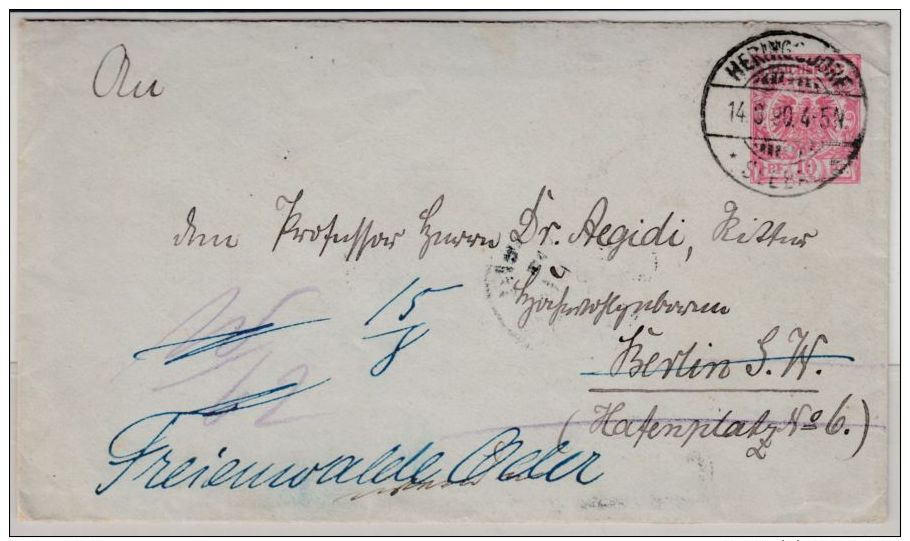 HERINGSDORF
14.8.90. 4-5N.
* SEEBAD
PF. 10
An
dem Professor Herrn Dr. Aegidi, Ritter
Hochwohlgeboren
15/8
Berlin S. W.
(Hafenplatz No 6.)
Freienwalde Oder